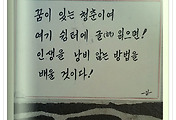 꿈이 있는 청춘이여
여기 쉼터에 글(詩) 읽으면!
인생을 낭비 않는 방법을
배울 것이다!